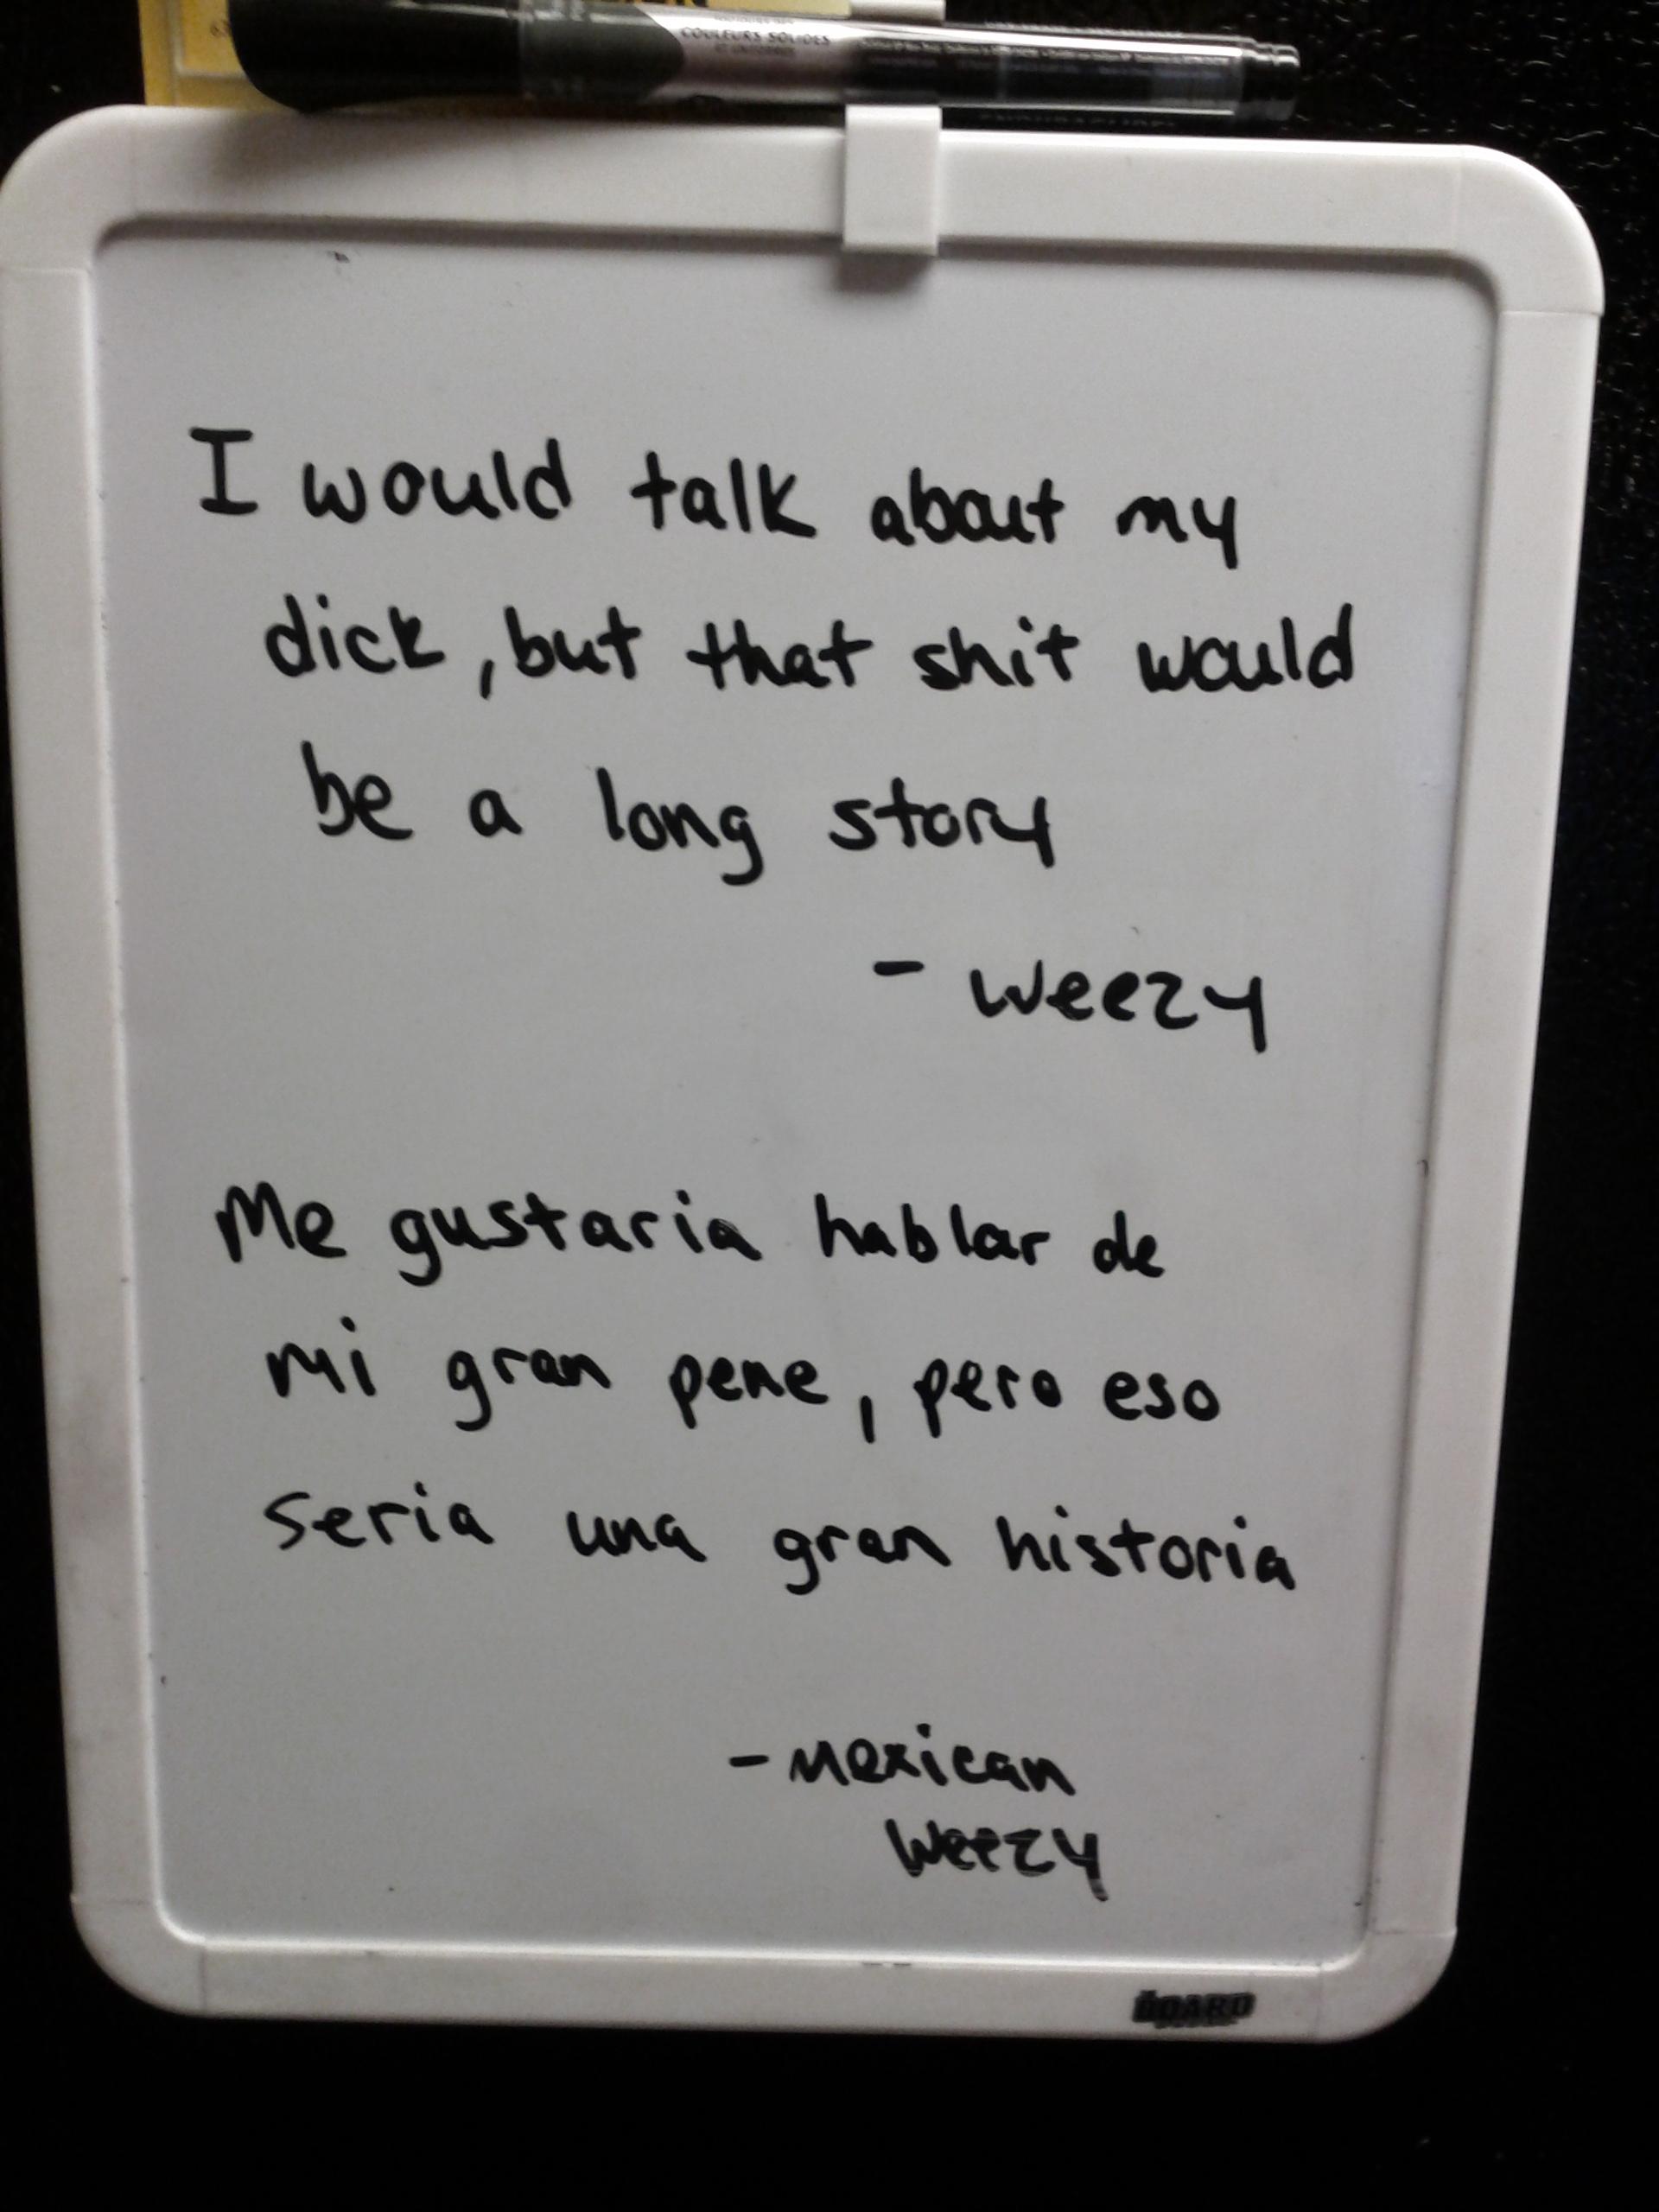 COULEURS SOLIDES
I would talk about my
dick, but that shit would
be a long story
- Weezy
Me gustaria hablar de
mi gran pene, pero eso
seria una gran historia
- Mexican
Weezy
BOARD